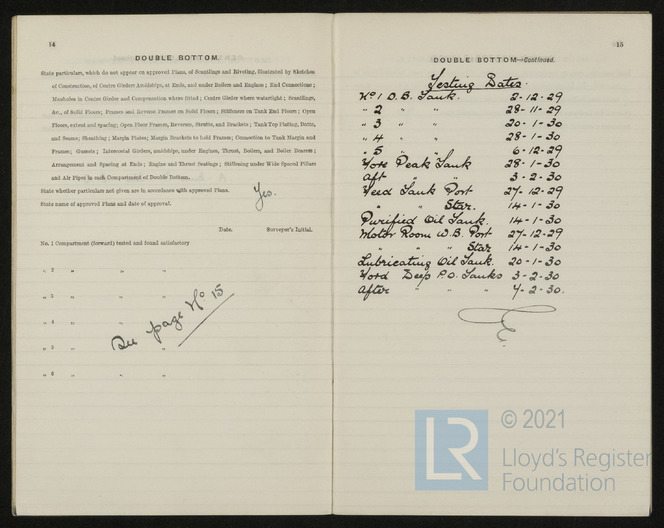 14
DOUBLE BOTTOM.
State particulars, which do not appear on approved Plans, of Scantlings and Riveting, illustrated by Sketches
of Construction, of Centre Girders Amidships, at Ends, and under Boilers and Engines; End Connections;
Manholes in Centre Girder and Compensation where fitted; Centre Girder where watertight; Scantlings,
&c., of Solid Floors; Frames and Reverse Frames on Solid Floors; Stiffeners on Tank End Floors; Open
Floors, extent and spacing; Open Floor Frames, Reverses, Struts, and Brackets; Tank Top Plating, Butts,
and Seams; Sheathing; Margin Plates; Margin Brackets to hold Frames; Connection to Tank Margin and
Frames; Gussets; Intercostal Girders, amidships, under Engines, Thrust, Boilers, and Boiler Bearers;
Arrangement and Spacing at Ends; Engine and Thrust Seatings; Stiffening under Wide Spaced Pillars
and Air Pipes in each Compartment of Double Bottom.
State whether particulars not given are in accordance with approved Plans. Yes.
State name of approved Plans and date of approval.
Date. Surveyor's Initial.
No. 1 Compartment (forward) tested and found satisfactory
„ 2 „ „ „
„ 3 „ „ „
„ 4 „ „ „
„ 5 „ „
„ 6 „ „ „
See page No 15
15
DOUBLE BOTTOM—Continued.
Testing Dates.
No 1 D.B. Tank. 2-12-29
" 2 " " 28-11-29
" 3 " " 20-1-30
" 4 " " 28-1-30
" 5 " " 6-12-29
Fore Peak Tank 28-1-30
Aft " " 3-2-30
Feed Tank Port 27-12-29
" " Star. 14-1-30
Purified Oil Tank. 14-1-30
Motor Room W.B. Port 27-12-29
" " " Star 14-1-30
Lubricating Oil Tank. 20-1-30
Ford Deep F.O. Tanks 3-2-30
After " " " 4-2-30.
LR
© 2021
Lloyd's Register
Foundation